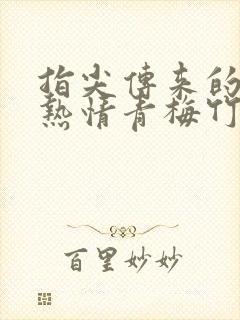 指尖傳来的
熱情青梅竹
百里妙妙